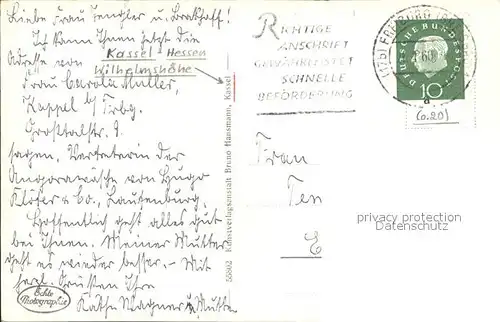 Liebe Frau Tendler u. Brekhoff!
Ich kann Ihnen jetzt die
Adresse von
Kassel - Hessen
Wilhelmshöhe
Frau Carola Müller,
Kappel b/ Frbg.
Großtalstr. 9
sagen, Vertreterin der
Angorawäsche von Hugo
& Co., Laufenburg,
Hoffentlich geht alles gut
bei Ihnen. Meiner Mutter
geht es wieder besser. – Mit
herzl. Grüßen Ihre
Käthe Wagner u. Mutter
Echte
Photographie
58802 Kunstverlagsanstalt Bruno Hansmann, Kassel
RICHTIGE
ANSCHRIFT
GEWÄHRLEISTET
SCHNELLE
BEFÖRDERUNG
(17b) FREIBURG
a
DEUTSCHE BUNDESPOST
10
(0.20)
Frau
Ten
privacy protection
Datenschutz